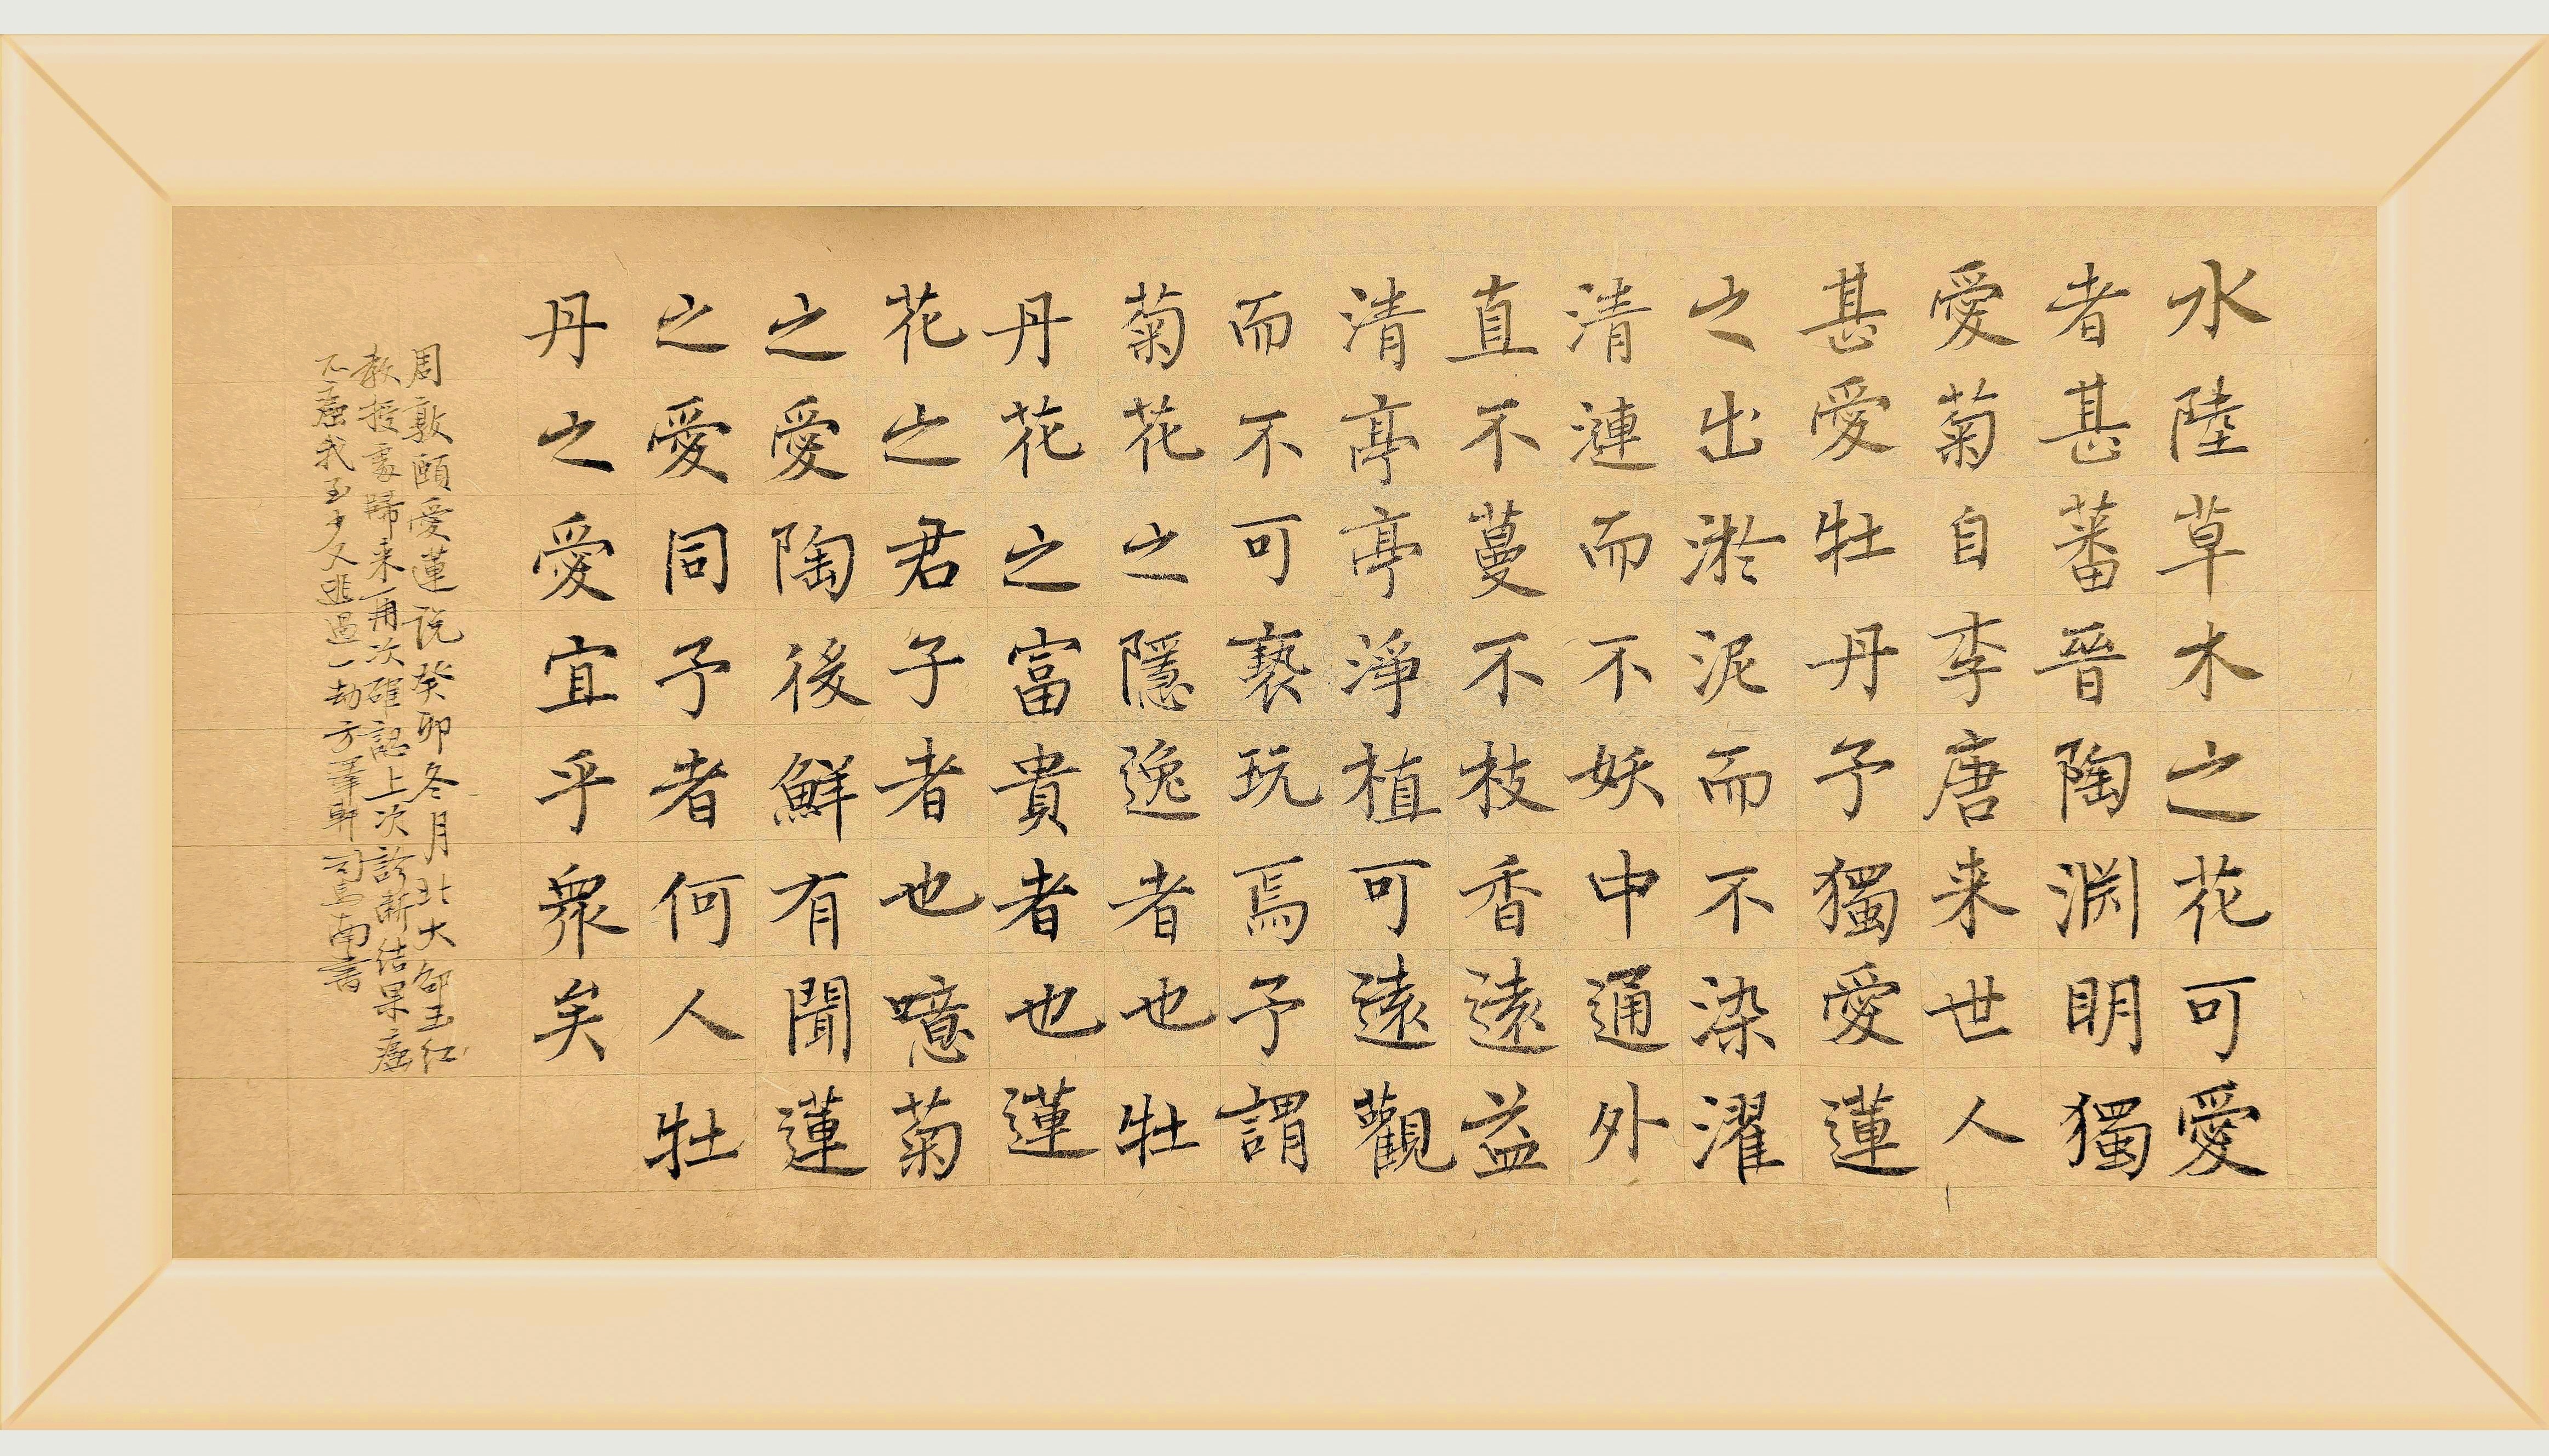 水陸草木之花可愛
者甚蕃晉陶淵明獨
愛菊自李唐来世人
甚愛牡丹予獨愛蓮
之出淤泥而不染濯
清漣而不妖中通外
直不蔓不枝香遠益
清亭亭淨植可遠觀
而不可褻玩焉予謂
菊花之隱逸者也牡
丹花之富貴者也蓮
花之君子者也噫菊
之愛陶後鮮有聞蓮
之愛同予者何人牡
丹之愛宜乎衆矣
周敦頤愛蓮说癸卯冬月北大邹玉红
教授處歸来再次確認上次診斷结果癌
不癌我至少又逃過一劫方筆軒司馬南書